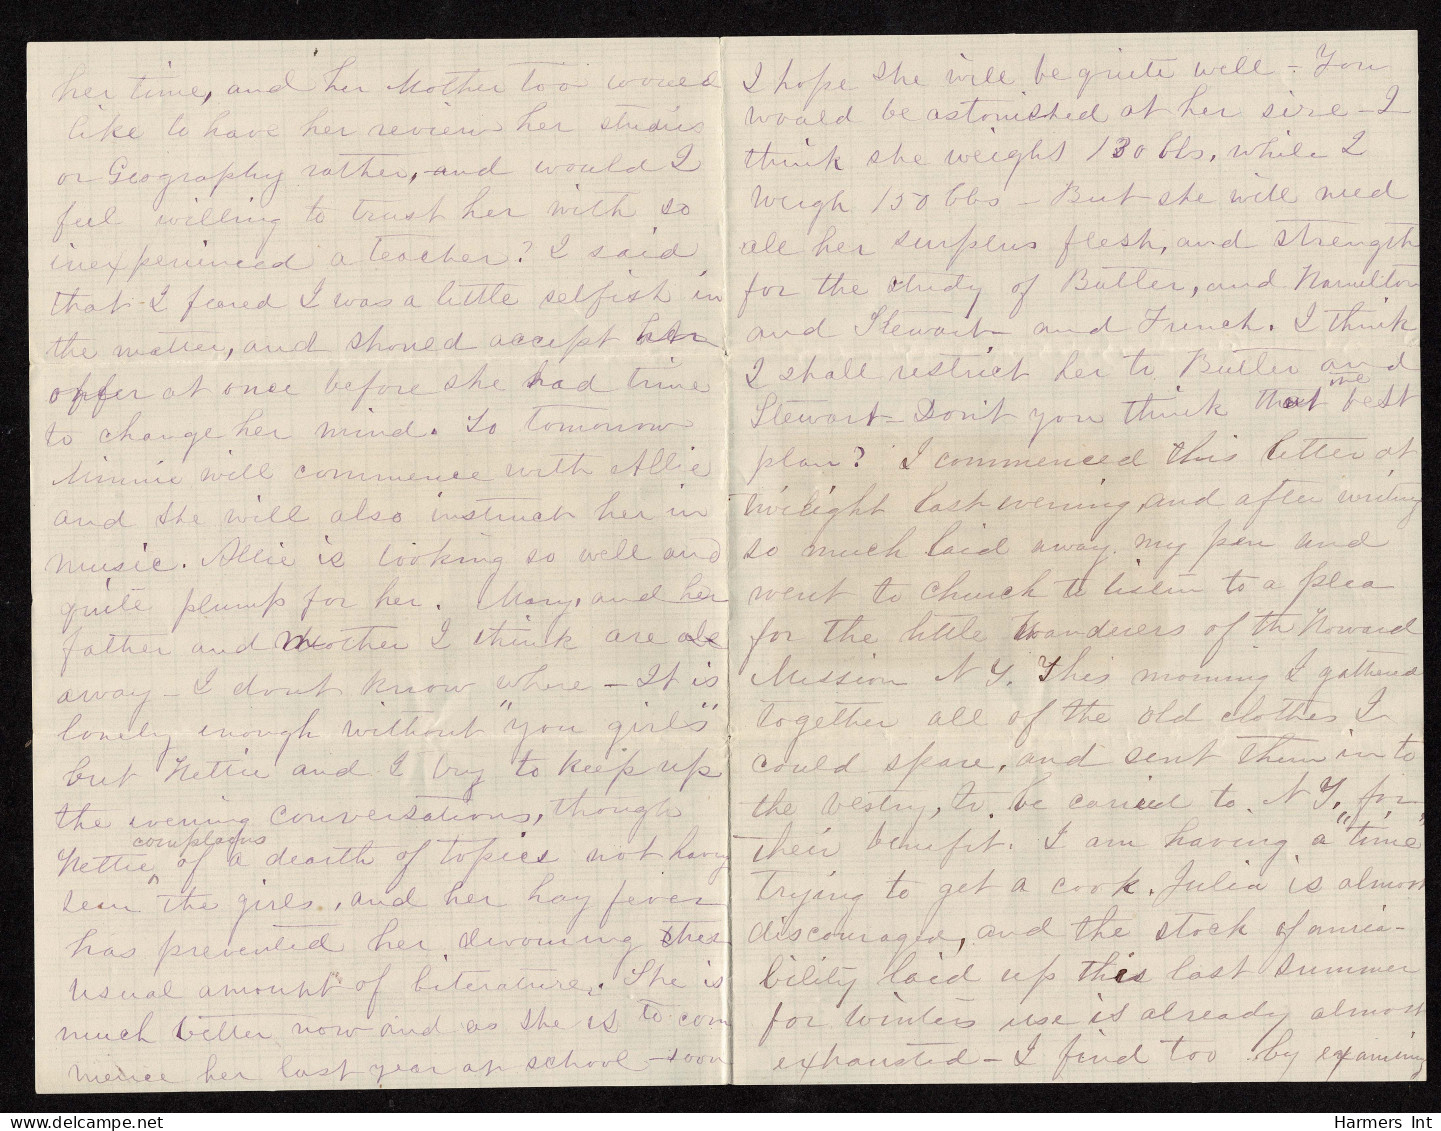 her time, and her Mother too would
like to have her review her studies
or Geography rather, and would I
feel willing to trust her with so
inexperienced a teacher? I said
that I feared I was a little selfish in
the matter, and should accept her
offer at once before she had time
to change her mind. So tomorrow
Minnie will commence with Allie
and she will also instruct her in
music. Allie is looking so well and
quite plump for her. Mary, and her
father and Mother I think are all
away - I dont know where - It is
lonely enough without "you girls"
but Nettie and I try to keep up
the evening conversations, though
Nettie complains of a dearth of topics not having
seen the girls, and her hay fever
has prevented her devouring the
usual amount of literature. She is
much better now and as she is to com
mence her last year at school - soon
I hope she will be quite well - You
would be astonished at her size - I
think she weighs 130 lbs, while I
weigh 150 lbs - But she will need
all her surplus flesh, and strength
for the study of Butler, and Hamilton
and Stewart and French. I think
I shall restrict her to Butler and
Stewart - Don't you think that the best
plan? I commenced this letter at
twilight last evening, and after writing
so much laid away my pen and
went to church to listen to a plea
for the little wanderers of the Howard
Mission N Y. This morning I gathered
together all of the old clothes I
could spare, and sent them in to
the vestry, to be carried to N Y. for
their benefit. I am having a "time"
trying to get a cook. Julia is almost
discouraged, and the stock of amia-
bility laid up this last summer
for winters use is already almost
exhausted - I find too by examining
Harmers Int